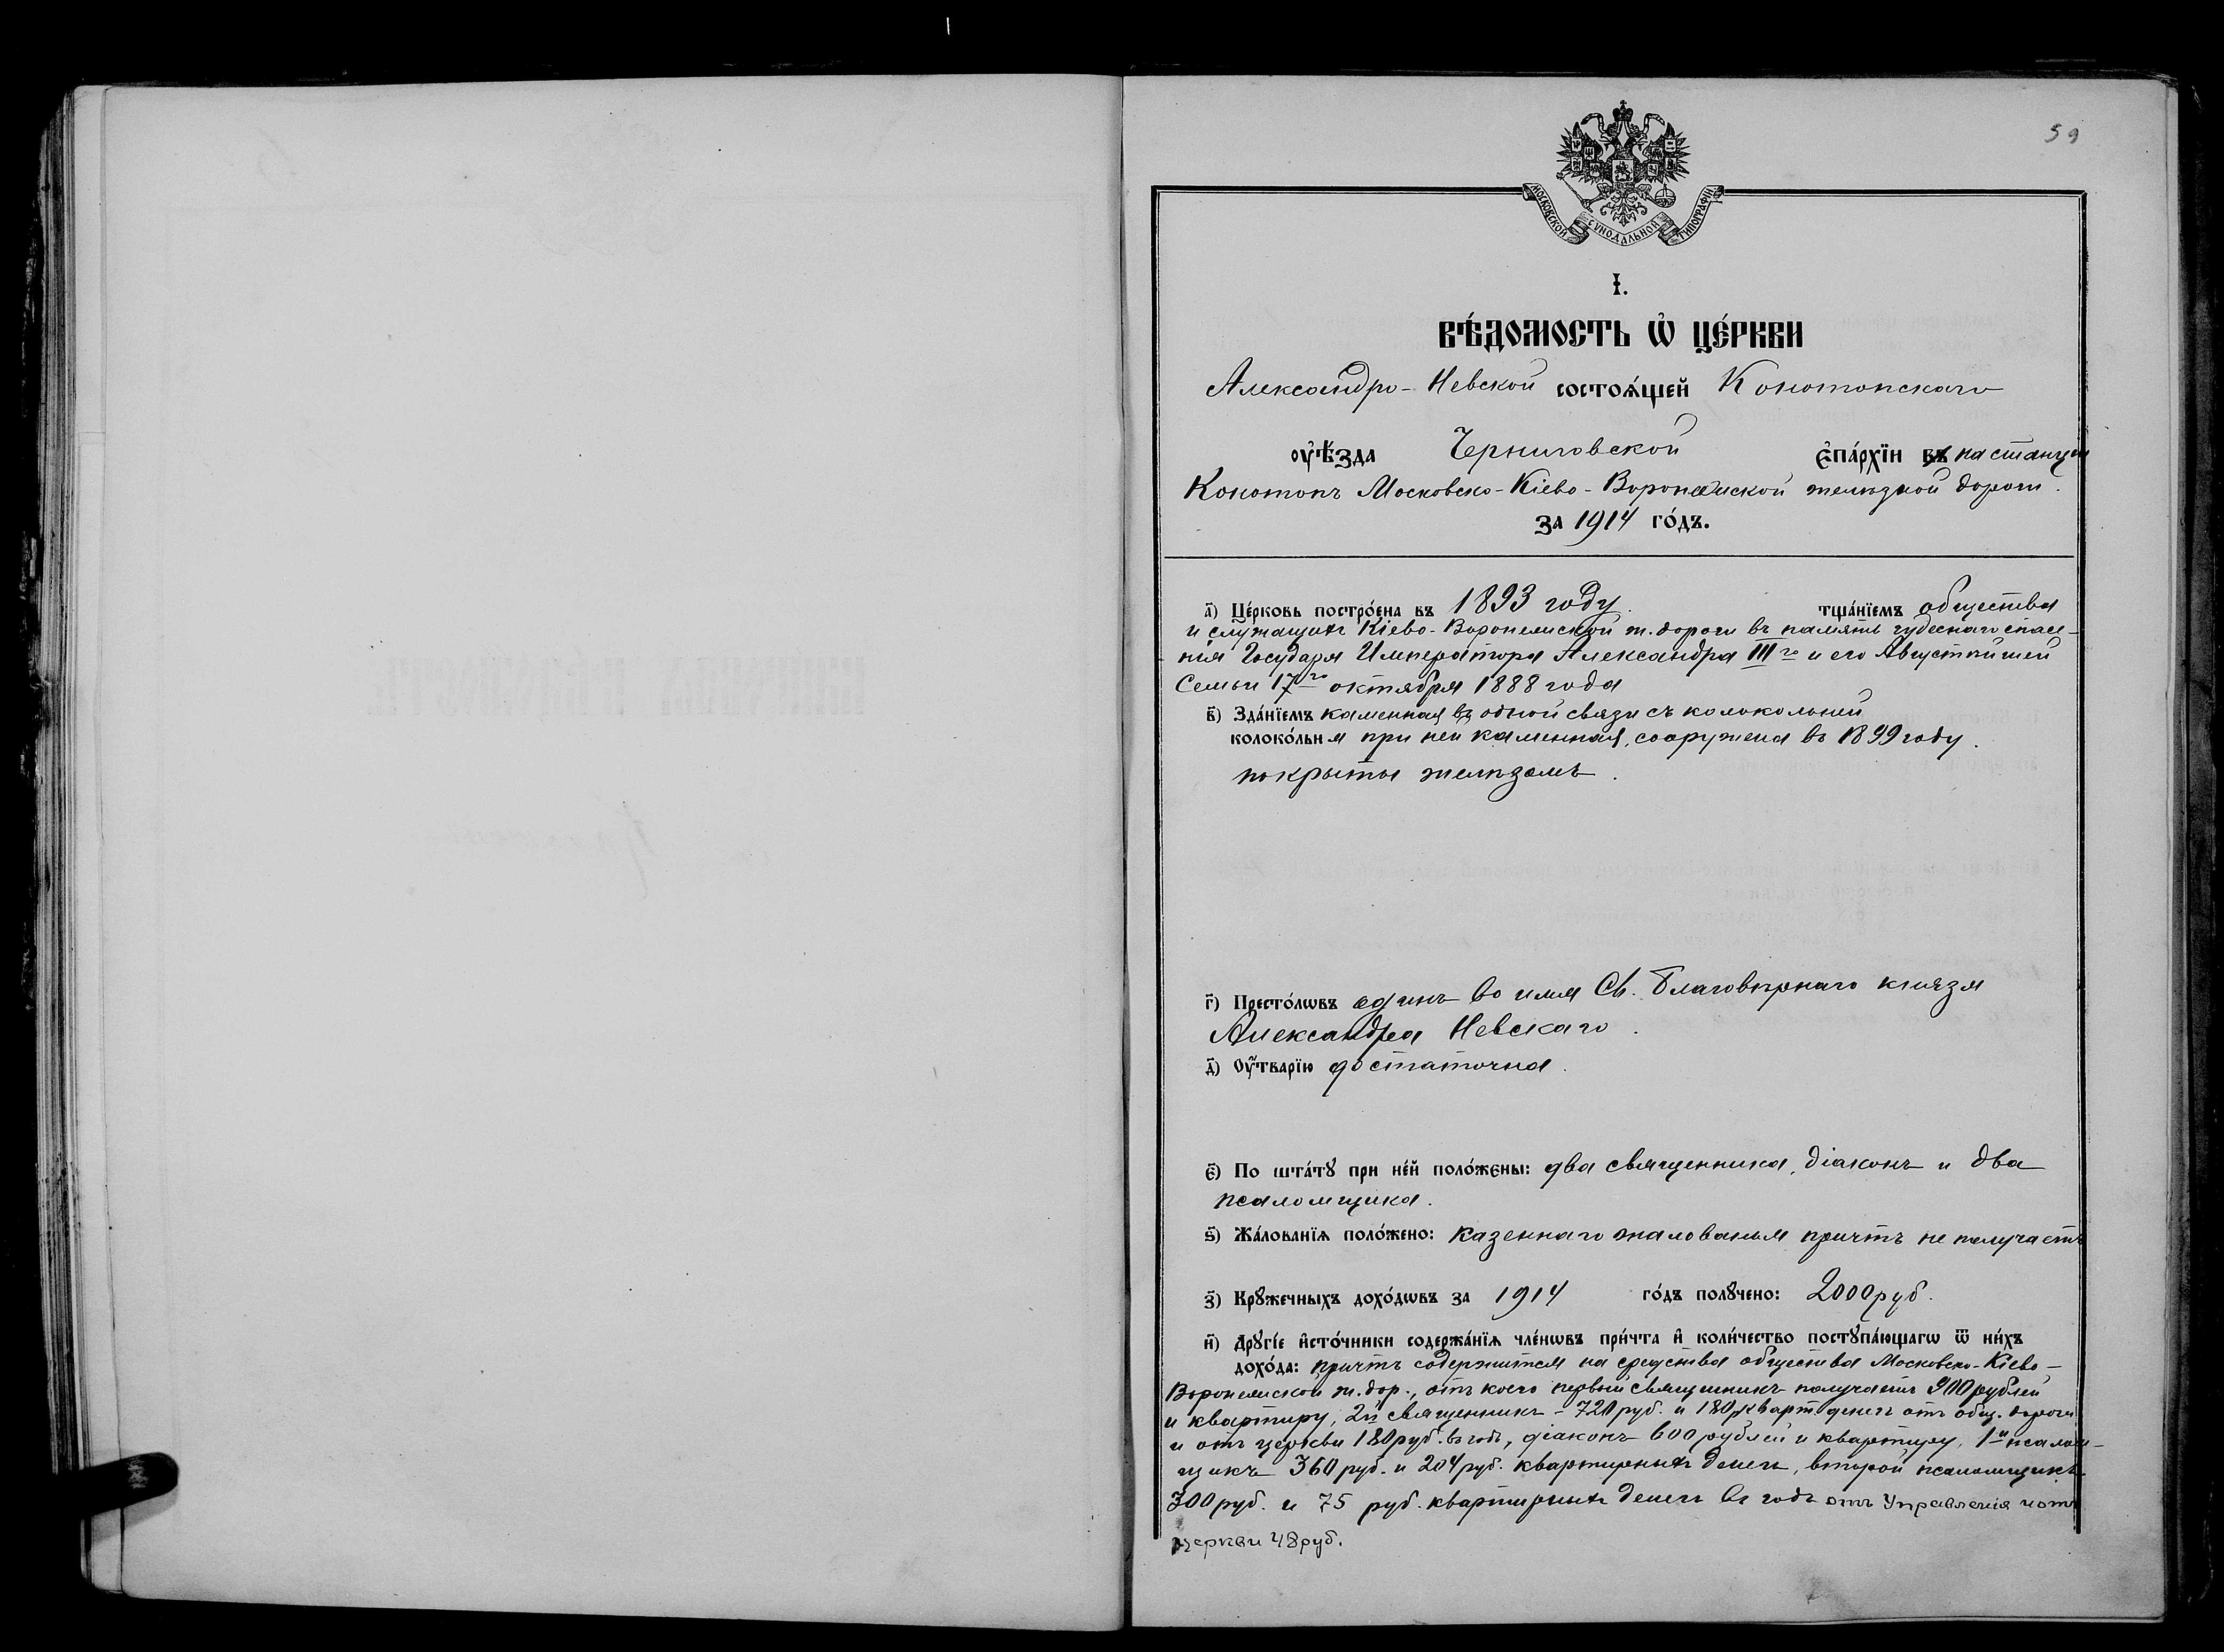 59
МОСКОВСКОЙ СУНОДАЛЬНОЙ ТИПОГРАФІИ
І.
ВѢ́ДОМОСТЬ Ѡ҆ ЦЕ́РКВИ
Александро-Невской состоѧ́щей Конотопскаго
оу҆ѣ́зда Черниговской є҆па́рхїи въ на станціи
Конотопъ Московско-Кіево-Воронежской желѣзной дороги.
за 1914 го́дъ.
а҃) Це́рковь постро́ена въ 1893 году. тща́нїемъ общества
и служащихъ Кіево-Воронежской ж. дороги въ память чудеснаго спасе-
нія Государя Императора Александра III го и его Августѣйшей
Семьи 17го октября 1888 года
в҃) Зда́нїемъ каменная въ одной связи съ колокольней
колоко́льня при ней каменная, сооружена въ 1899 году.
покрыты желѣзомъ.
г҃) Престо́лѡвъ одинъ во имя Св. Благовѣрнаго князя
Александра Невскаго.
д҃) Оу҆́тварїю достаточна.
є҃) По шта́тꙋ при не́й поло́жены: два священника, діаконъ и два
псаломщика.
ѕ҃) Жа́лованїѧ поло́жено: казеннаго жалованья причтъ не получаетъ
з҃) Крꙋ́жечныхъ дохо́дѡвъ за 1914 го́дъ полꙋ́чено: 2000 руб.
и҃) Дрꙋгі́е и҆сто́чники содержа́нїѧ чле́нѡвъ при́чта и҆ коли́чество постꙋпа́ющагѡ ѿ ни́хъ
дохо́да: причтъ содержится на средства общества Московско-Кіево-
Воронежской ж. дор., отъ коего первый священникъ получаетъ 900 рублей
и квартиру, 2й священникъ - 720 руб. и 180 р. кварт. денегъ отъ общ. дороги
и отъ церкви 180 руб. въ годъ, діаконъ 600 рублей и квартиру, 1й псалом-
щикъ 360 руб. и 204 руб. квартирныхъ денегъ, второй псаломщикъ
300 руб. и 75 руб. квартирныхъ денегъ въ годъ отъ Управленія и отъ
церкви 48 руб.